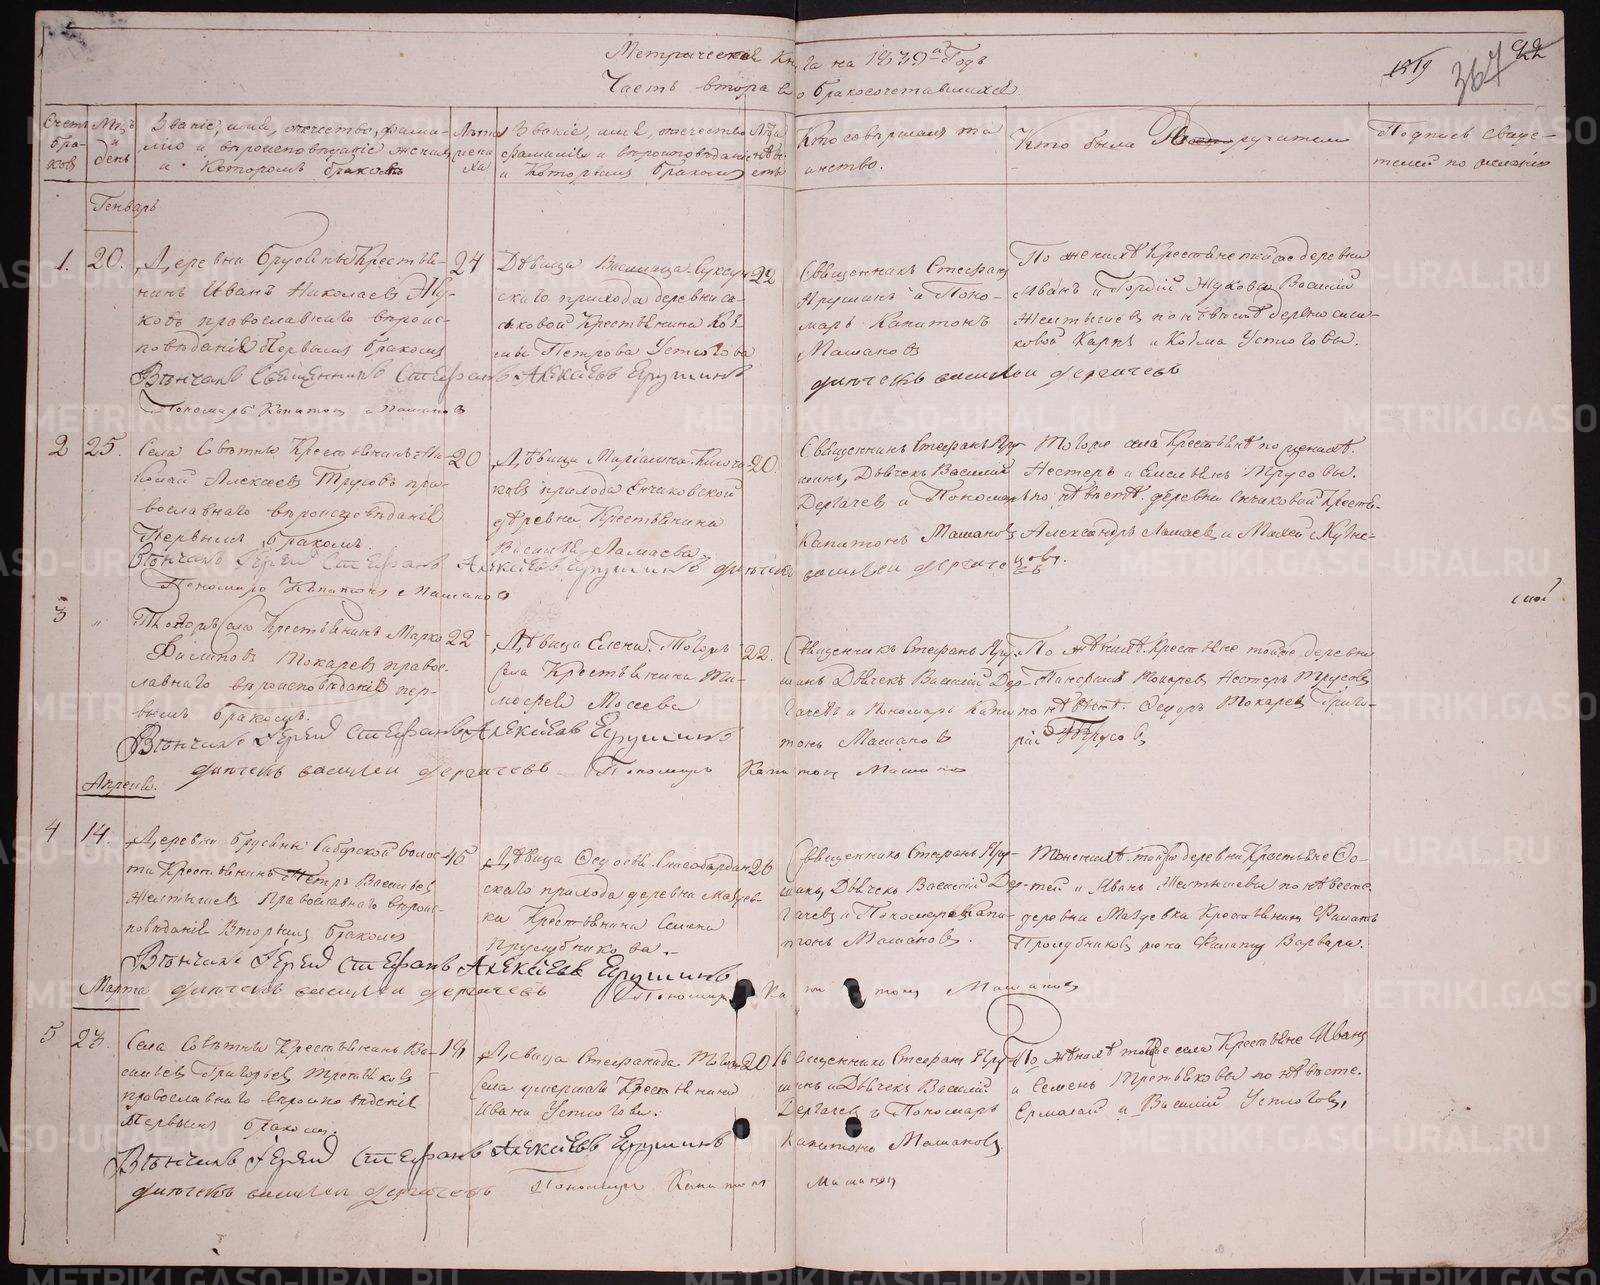 Метрическая Книга на 1839й Годъ
Часть втора о бракосочетавшихся
1819
367
92
Счетъ бра-ковъ
Мцъ и день
Званіе, имя, отчество, фами-
лію и вѣроисповѣданіе жениха
и Которомъ бракомъ
Лѣта жени ха
Званіе, имя, отчество
фамилія и вѣроисповѣданіе невѣ-
и Которымъ бракомъ
Лѣта
Кто совершалъ та
инство.
Кто были Поручители
Подпись свидѣ-
телей по желанію
Генварь
1. 20.
Деревни Крестья-
нинъ Иванъ Николаевъ Жу-
ковъ православнаго вѣроис-
повѣданія Первымъ бракомъ
24
Дѣвица Василиса
скаго прихода деревни са-
ковой Крестьянина Коз-
мы Петрова Устюгова
22
Священникъ Стефанъ
Ярушинъ и Поно-
марь Капитонъ
Машановъ
По женихѣ Крестьяне той же деревни
Иванъ и Гордій Жуковы Василій
Желтышевъ по невѣстѣ деревни
ковой Карпъ и Козма Устюговы.
Вѣнчалъ Священникъ Стефанъ Алексѣевъ Ерушинъ
дьячекъ василеи дергачевъ
Пономарь Капитонъ Машановъ
2 25.
Села Совѣтны Крестьянинъ Ни-
колай Алексеевъ Трусовъ пра-
вославнаго вѣроисповѣданія
Первымъ бракомъ.
20
Дѣвица Маріамна
ковъ прихода Енчиковской
деревни Крестьянина
Василья Ламаева
20.
Священникъ Стефанъ Яру-
шинъ, Дьячекъ Василій
Дергачев и Пономарь
Капитонъ Машановъ
Тогоже села Крестьяне по женихѣ.
Нестеръ и Емельянъ Трусовы.
по невѣстѣ деревни Енчиковой Кресть-
Александръ Ламаевъ и Матвей Кузне-
цовъ.
Вѣнчалъ Іереи Стефанъ Алексѣевъ Ерушинъ дьячекъ василеи дергачевъ
Пономарь Капитонъ Машановъ
3 "
Тогожъ Села Крестьянинъ Марко
Филиповъ Токаревъ правос-
лавнаго вѣроисповѣданія пер-
вымъ бракомъ.
22
Дѣвица Елена. Тогожъ
Села Крестьянина Ти-
мофея Мосеева
22.
Священникъ Стефанъ Яру-
шинъ Дьячекъ Василій Дер-
гачевъ и Пономарь Капи-
тонъ Машановъ
По женихѣ. Крестьяне тойже деревни
Токаревъ Нестеръ Трусовъ
по невѣстѣ. Федоръ Токаревъ Григо-
рій Трусовъ
Вѣнчалъ Іереи Стефанъ Алексѣевъ Ерушинъ
дьячекъ василеи дергачевъ Пономарь Капитонъ Машановъ
Апреля.
4 14.
Деревни волос-
ти Крестьянинъ Петръ Васильев
Желтышев Православнаго вѣроис-
повѣданія Вторымъ бракомъ
45
Дѣвица Федосья
скаго прихода деревни Мазуев-
ки Крестьянина Семена
Пролубникова.
26
Священникъ Стефанъ Яру-
шинъ, Дьячекъ Василій Дер-
гачевъ и Пономарь Капи-
тонъ Машановъ.
По женихѣ. тойже деревни Крестьяне Фо-
тей и Иванъ Желтышевы по невесте.
деревни Мазуевка Крестьянинъ Филипъ
Пролубниковъ жена Филипа Варвара.
Вѣнчалъ Іереи Стефанъ Алексѣевъ Ерушинъ
Марта дьячекъ василеи дергачевъ Пономарь Капитонъ Машановъ
5 27.
Села Совѣтны Крестьянинъ Ва-
сильев Григорьев Третьяковъ
православнаго вѣроисповѣденія
Первымъ бракомъ.
19
Дѣвица Стефанида. Тогожъ
Села умершаго Крестьянина
Ивана Устюгова.
20
Священникъ Стефанъ Яру-
шинъ и Дьячекъ Василій
Дергачев и Пономарь
Капитонъ Машановъ
По женихѣ тойже села Крестьяне Иванъ
и Семенъ Третьяковы по невѣсте.
Ермолай и Василій Устюговъ,
Вѣнчалъ Іереи Стефанъ Алексѣевъ Ерушинъ
дьячекъ василеи дергачевъ Пономарь Капитонъ Машановъ
METRIKI.GASO-URAL.RU